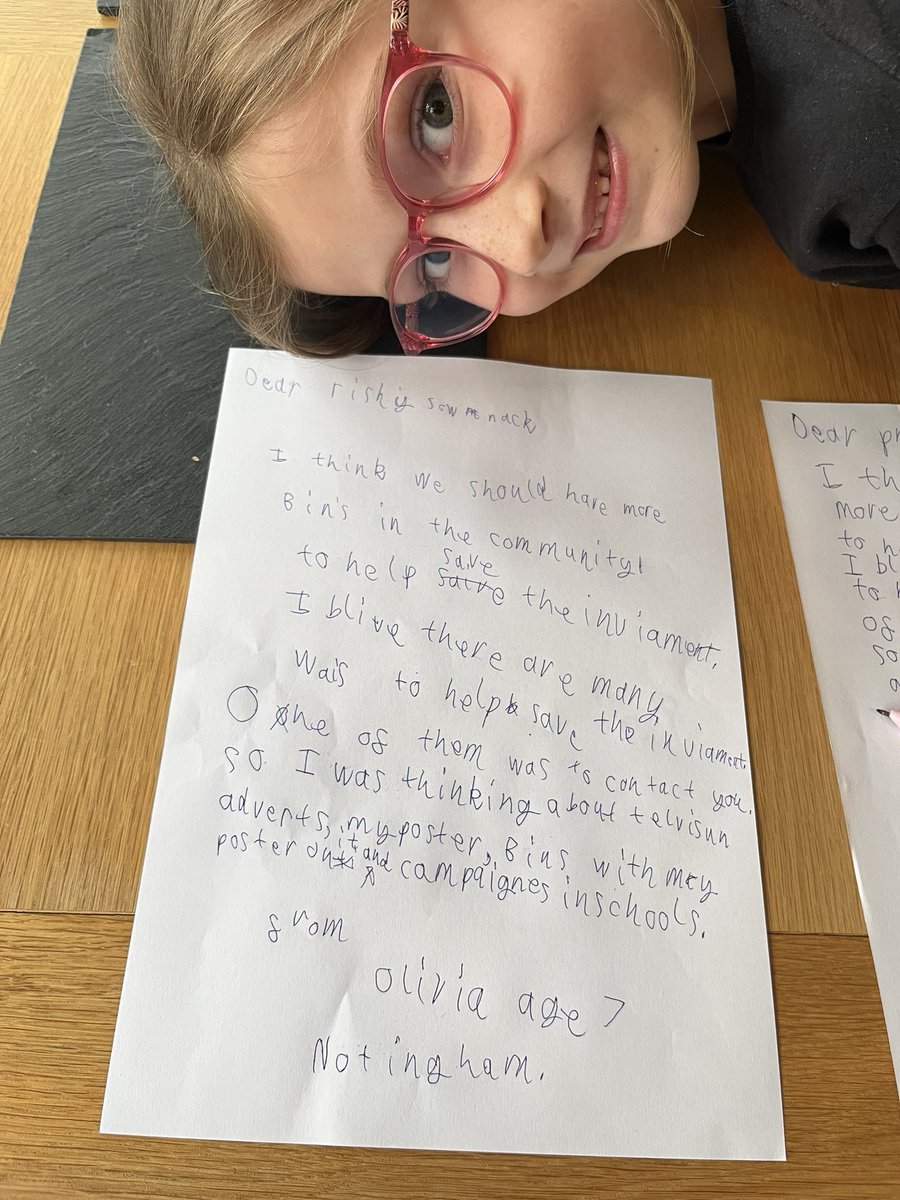 Dear rishiy sow me nack
I think we should have more
Bin's in the community!
to help save the inviament.
I blive there are many
wais to help save the inviament.
One of them was to contact you.
so I was thinking about telvisun
adverts, my poster, Bins with my
poster on it and campaignes in schools.
from
olivia age 7
Notingham.
Dear pr
I th
more
to h
I bl
to h
of
so
a